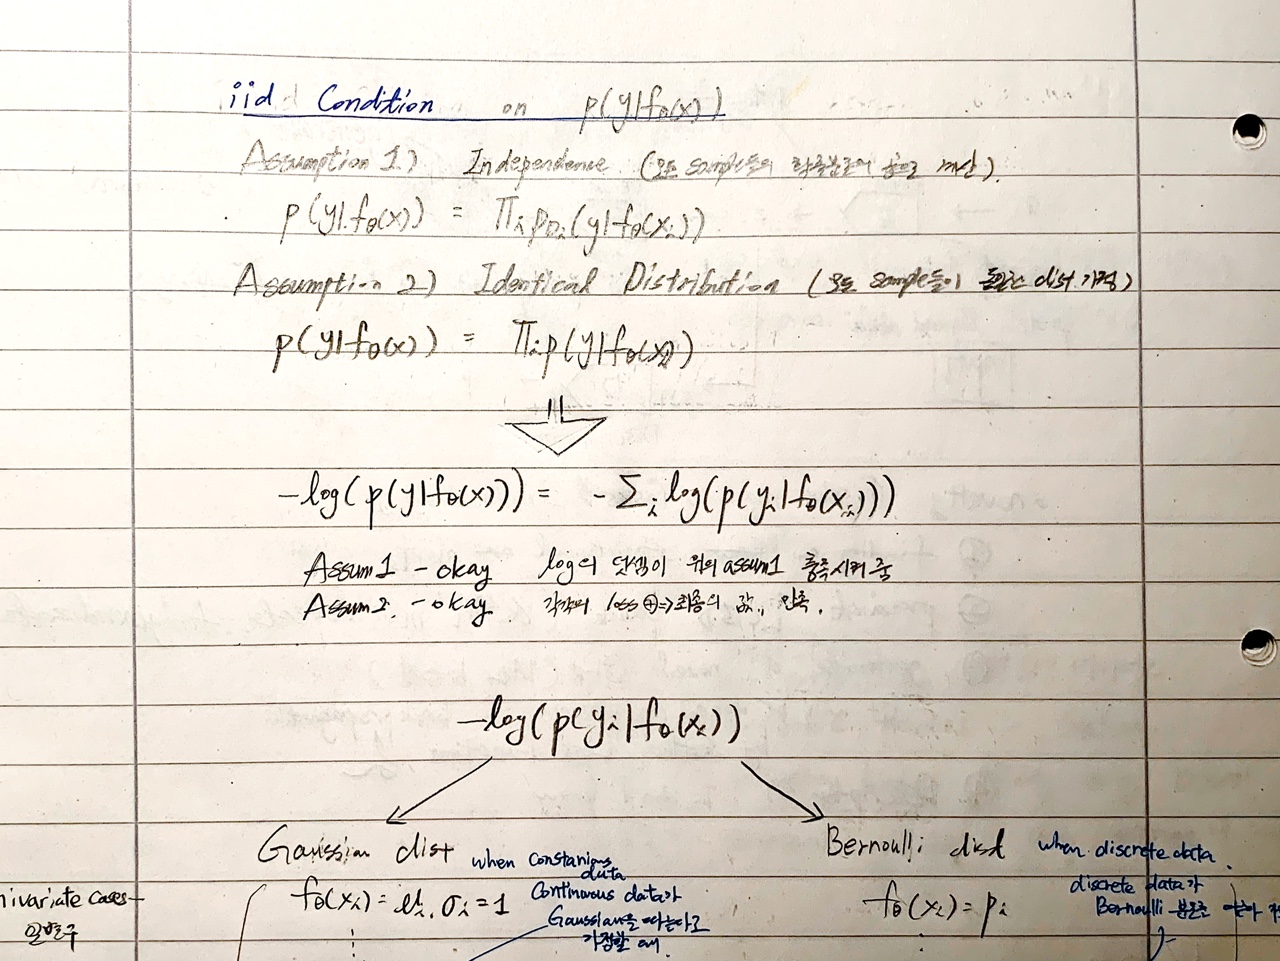 iid Condition on p(y|fθ(x))
Assumption 1) Independence (모든 sample들의 확률분포의 곱으로 계산).
p(y|fθ(x)) = Πᵢ p_Dᵢ(y|fθ(xᵢ))
Assumption 2) Identical Distribution (모든 sample들이 동일한 dist 가정)
p(y|fθ(x)) = Πᵢ p(y|fθ(xᵢ))
-log(p(y|fθ(x))) = -Σᵢ log(p(yᵢ|fθ(xᵢ)))
Assum1 - okay log의 덧셈이 위의 assum1 충족시켜 줌
Assum2. - okay 각각의 loss ⊕=>최종의 값., 만족.
-log(p(yᵢ|fθ(xᵢ))
Gaussian dist when
data
fθ(xᵢ) = μᵢ, σᵢ = 1
Continuous data가
Gaussian을 따른다고
가정할 때
Bernoulli dist when discrete data.
discrete data가
fθ(xᵢ) = pᵢ
Bernoulli 분포
nivariate cases-